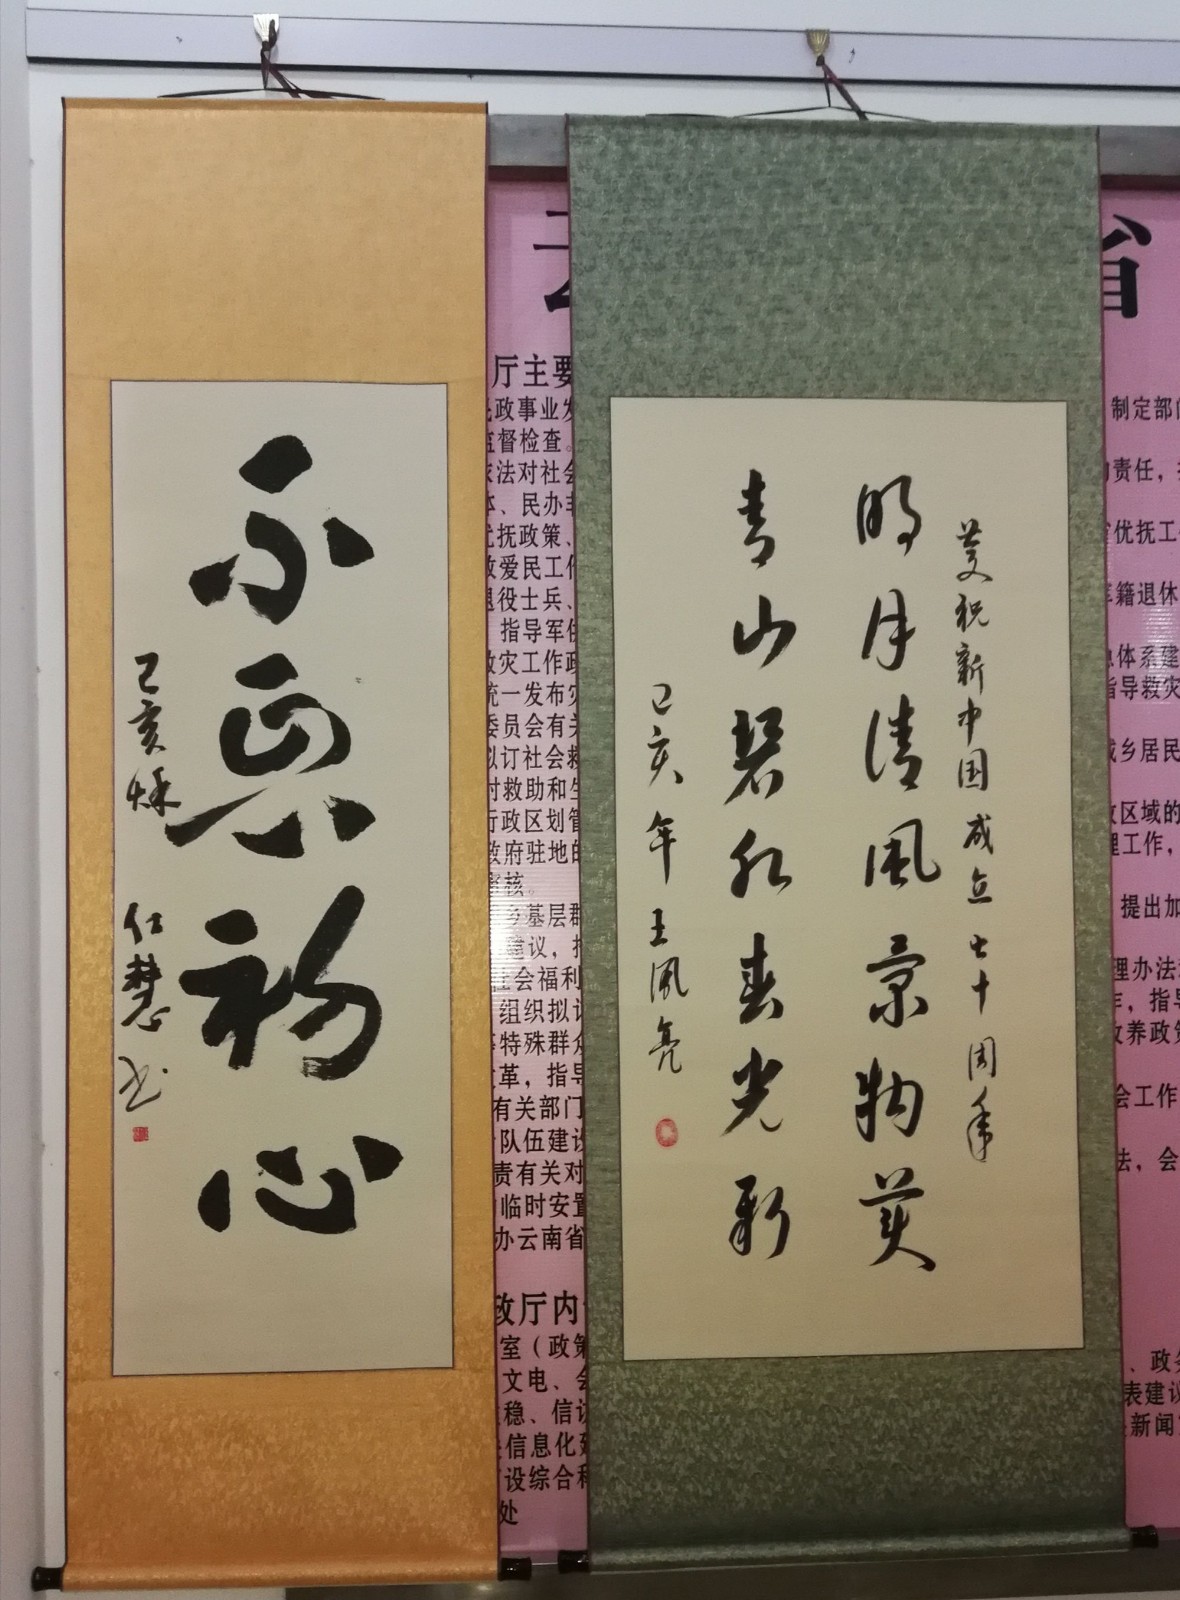 不忘初心
己亥秋
仁慧书
庆祝新中国成立七十周年
明月清風景物美
青山碧水春光新
己亥年 王凤亮
省
厅主要
政事业发
监督检查。
依法对社会
、民办非
优抚政策、
爱民工作
退役士兵、
指导军
救灾工作政
统一发布灾
委员会有关
拟订社会救
时救助和生
行政区划管
政府驻地的
审核。
乡基层群
建议，
社会福利
组织拟订
特殊群众
改革，指导
有关部门
队伍建设
责有关对
临时安置
办云南省
政厅内
室（政策
文电、会
稳、信访
信息化建
设综合科
处
制定部
责任，
优抚工作
军籍退休
体系建
指导救灾
城乡居民
政区域的
理工作，
提出加
理办法
，指导
收养政策
会工作
法，会
、政务
表建议
新闻